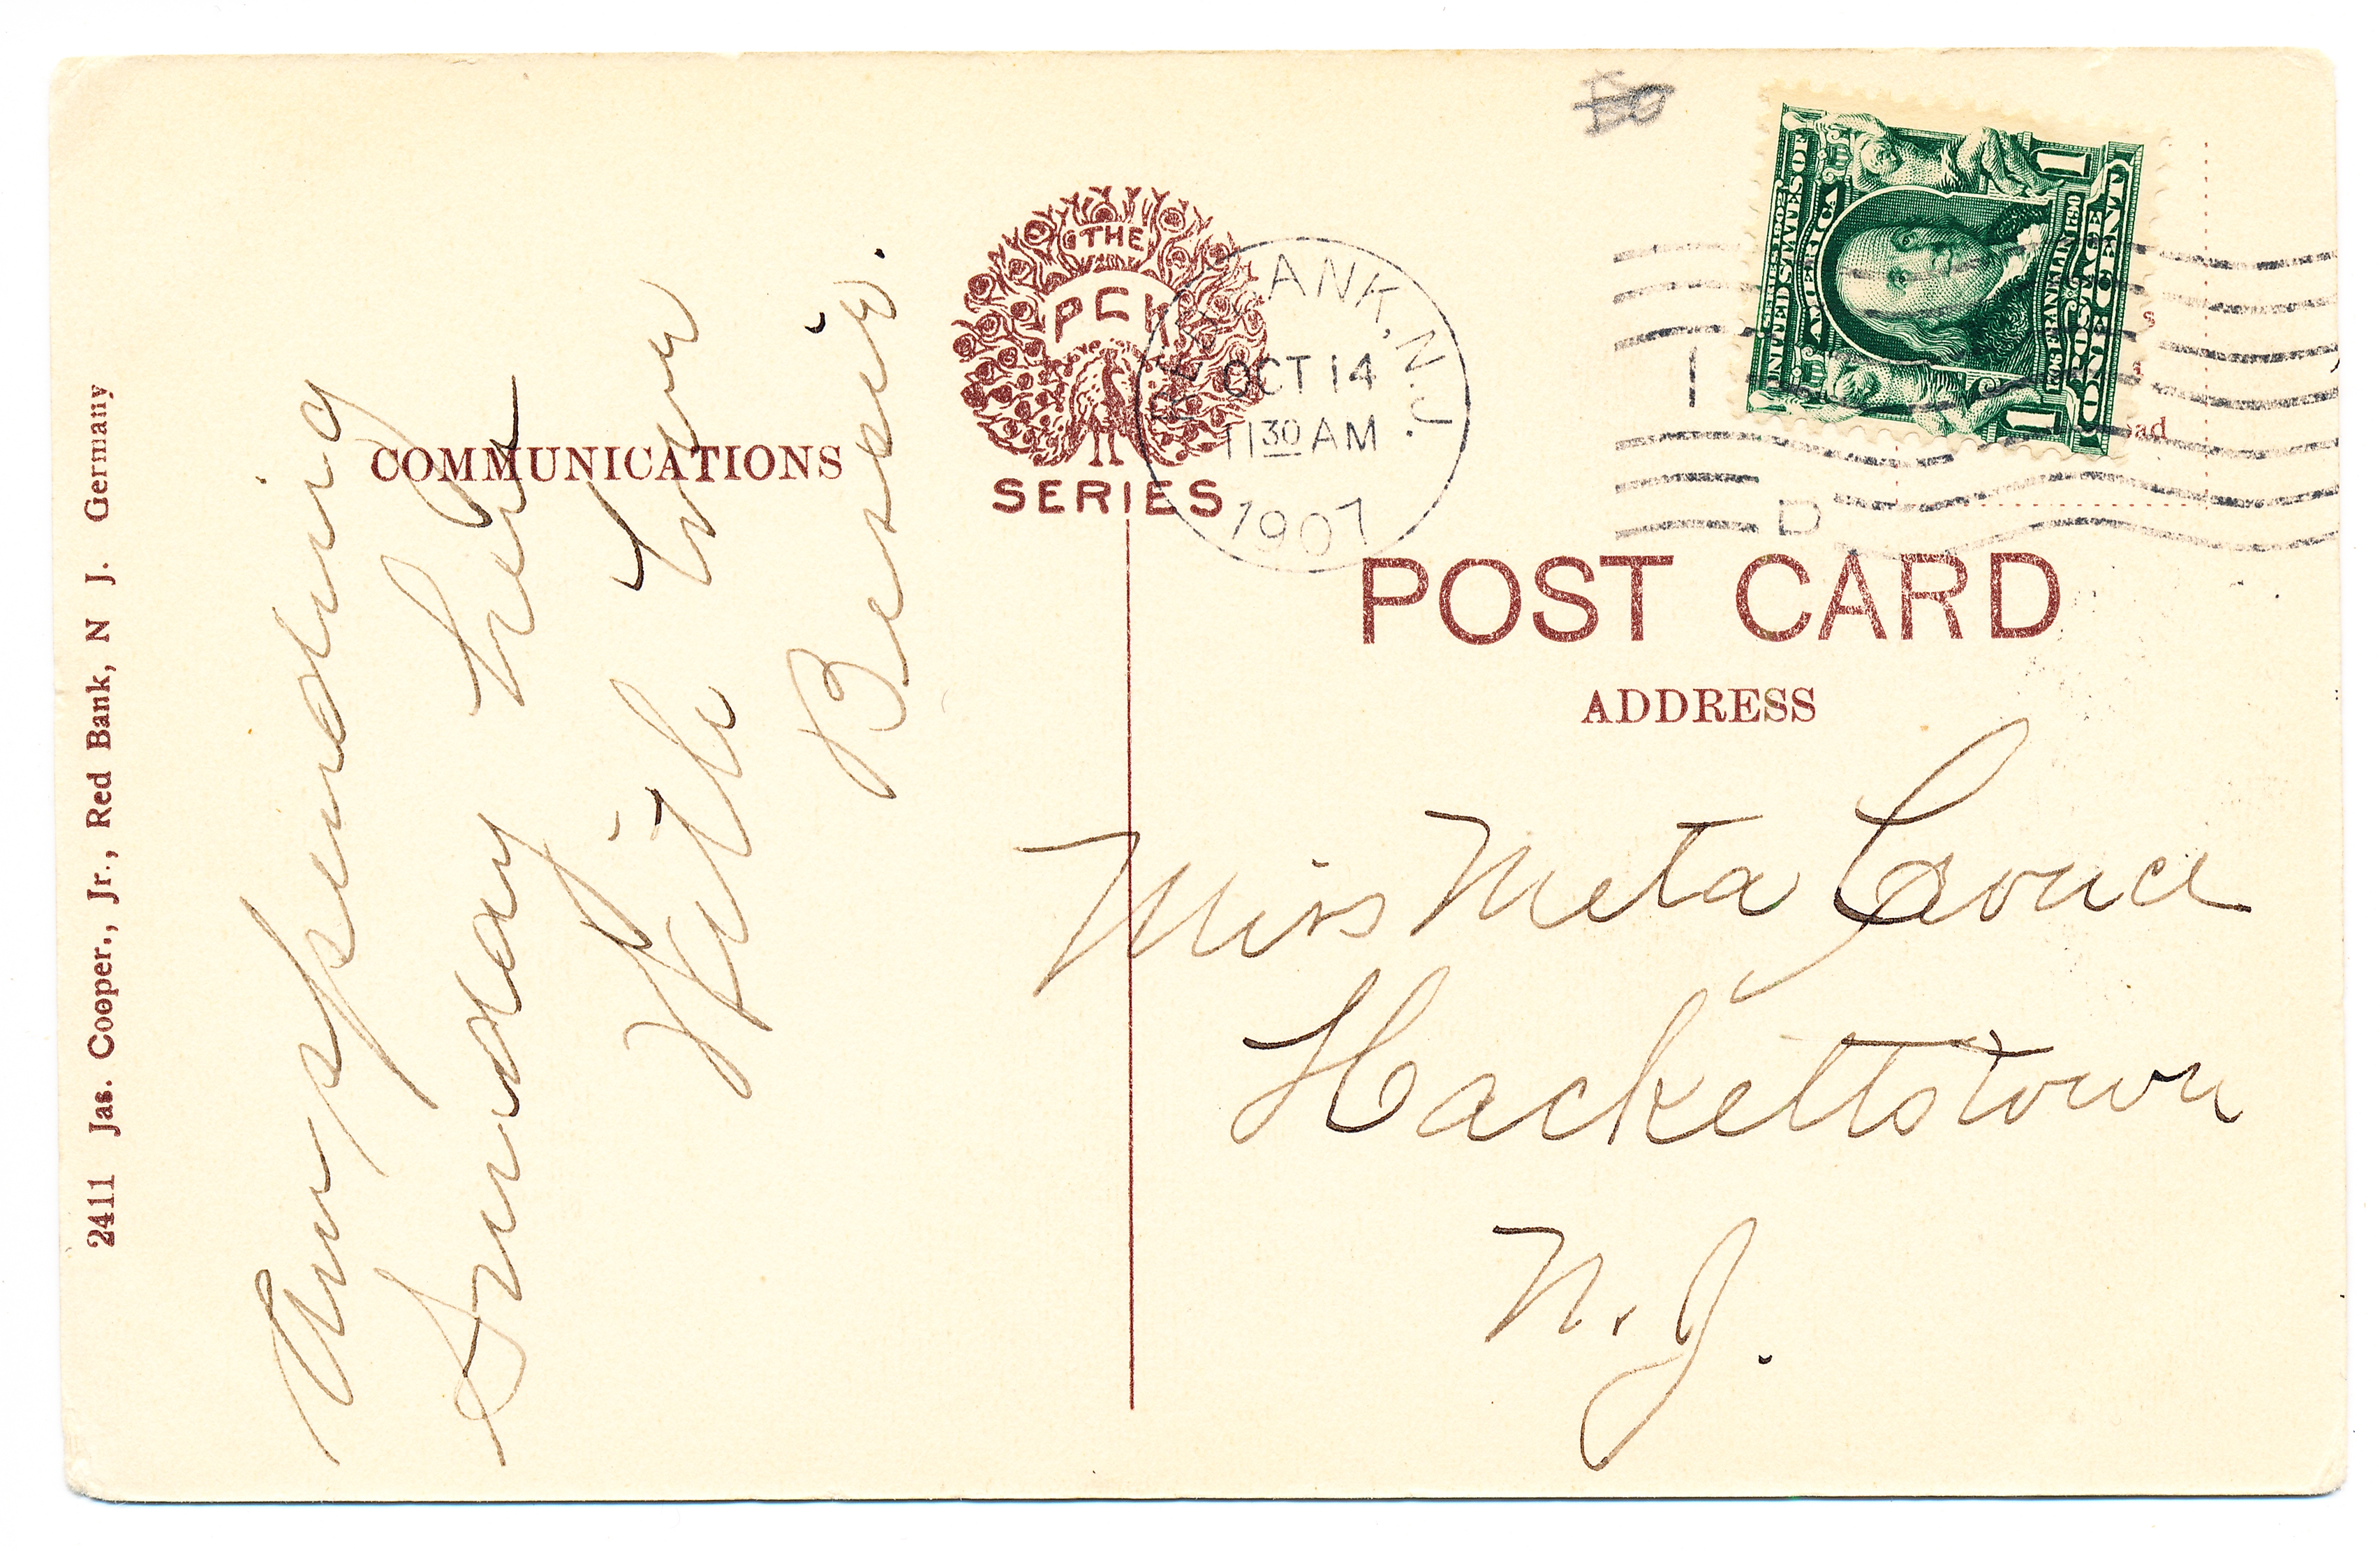 2411 Jas. Cooper., Jr., Red Bank, N J. Germany
COMMUNICATIONS
Am spending
Sunday here
With Love
Bessie.
THE
PCK
SERIES
RED BANK, N.J.
OCT 14
11 30 AM
1907
D
SERIES 1902
UNITED STATES OF
AMERICA
1706 FRANKLIN 1790
POSTAGE
ONE CENT
1 1
POST CARD
ADDRESS
Miss Meta
Hackettstown
N. J.